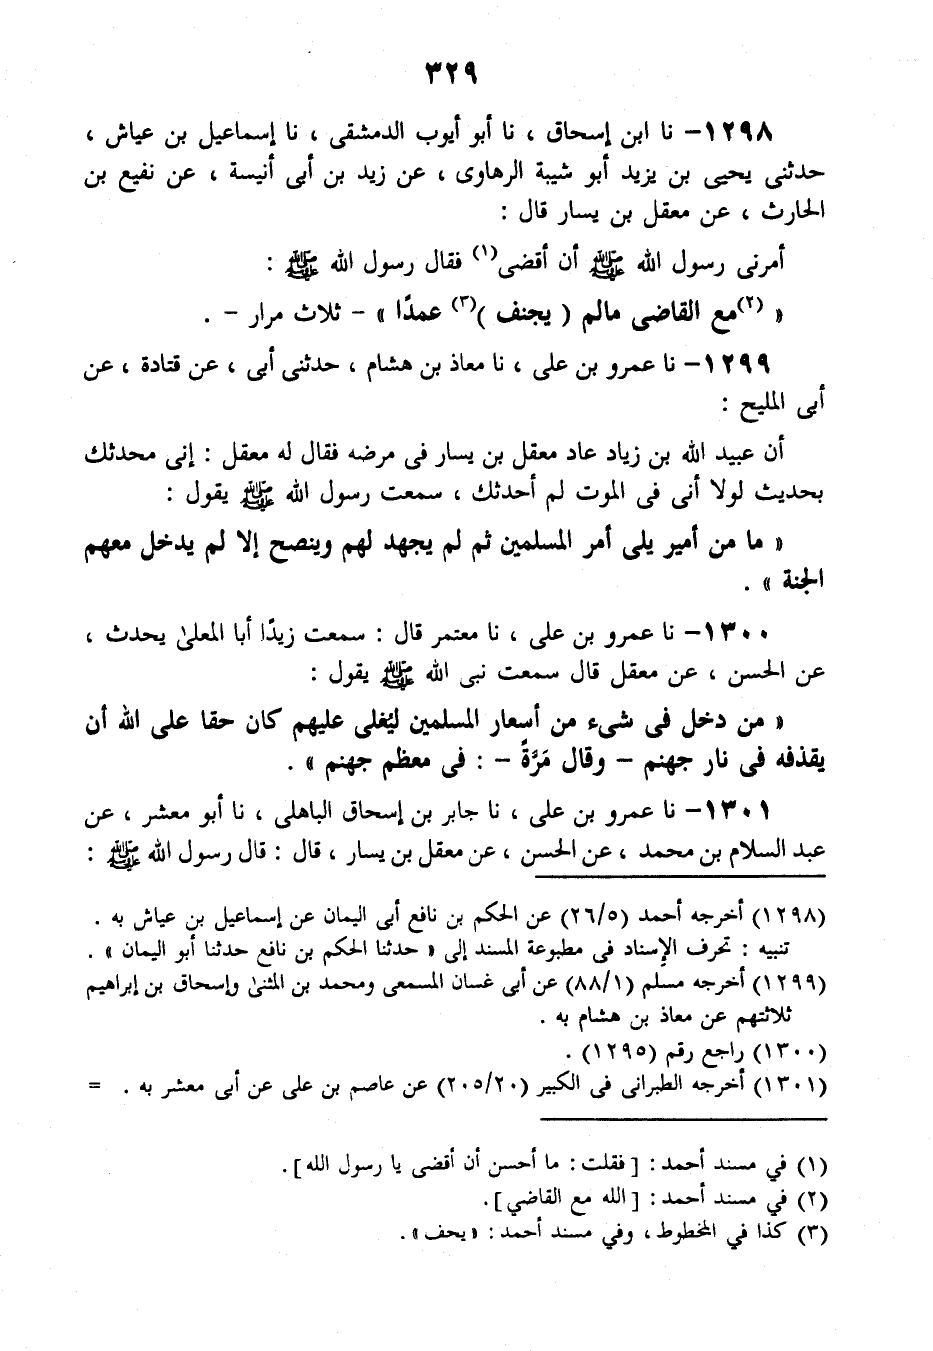 ٣٢٩
١٢٩٨- نا ابن إسحاق ، نا أبو أيوب الدمشقى ، نا إسماعيل بن عياش ،
حدثنى يحيى بن يزيد أبو شيبة الرهاوى ، عن زيد بن أبى أنيسة ، عن نفيع بن
الحارث ، عن معقل بن يسار قال :
أمرنى رسول الله ﷺ أن أقضى(١) فقال رسول الله ﷺ :
« (٢)مع القاضى مالم ( يجنف )(٣) عمدًا » - ثلاث مرار - .
١٢٩٩- نا عمرو بن على ، نا معاذ بن هشام ، حدثنى أبى ، عن قتادة ، عن
أبى المليح :
أن عبيد الله بن زياد عاد معقل بن يسار فى مرضه فقال له معقل : إنى محدثك
بحديث لولا أنى فى الموت لم أحدثك ، سمعت رسول الله ﷺ يقول :
« ما من أمير يلى أمر المسلمين ثم لم يجهد لهم وينصح إلا لم يدخل معهم
الجنة » .
١٣٠٠- نا عمرو بن على ، نا معتمر قال : سمعت زيدًا أبا المعلىٰ يحدث ،
عن الحسن ، عن معقل قال سمعت نبى الله ﷺ يقول :
« من دخل فى شىء من أسعار المسلمين ليُغلى عليهم كان حقا على الله أن
يقذفه فى نار جهنم - وقال مَرَّةً - : فى معظم جهنم » .
١٣٠١- نا عمرو بن على ، نا جابر بن إسحاق الباهلى ، نا أبو معشر ، عن
عبد السلام بن محمد ، عن الحسن ، عن معقل بن يسار ، قال : قال رسول الله ﷺ :
(١٢٩٨) أخرجه أحمد (٢٦/٥) عن الحكم بن نافع أبى اليمان عن إسماعيل بن عياش به .
تنبيه : تحرف الإسناد فى مطبوعة المسند إلى « حدثنا الحكم بن نافع حدثنا أبو اليمان » .
(١٢٩٩) أخرجه مسلم (٨٨/١) عن أبى غسان المسمعى ومحمد بن المثنىٰ وإسحاق بن إبراهيم
ثلاثتهم عن معاذ بن هشام به .
(١٣٠٠) راجع رقم (١٢٩٥) .
(١٣٠١) أخرجه الطبرانى فى الكبير (٢٠٥/٢٠) عن عاصم بن على عن أبى معشر به . =
(١) في مسند أحمد : [ فقلت : ما أحسن أن أقضى يا رسول الله ] .
(٢) في مسند أحمد : [ الله مع القاضي ] .
(٣) كذا في المخطوط ، وفي مسند أحمد : « يحف » .